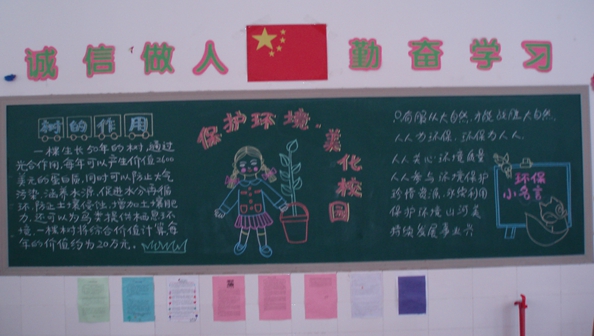 诚信做人 勤奋学习
树的作用
一棵生长50年的树,通过
光合作用,每年可以产生价值2600
美元的蛋白质,同时可以防止大气
污染、涵养水源,促进水分再循
环,防止土壤侵蚀,增加土壤肥
力,还可以为鸟类提供栖息环
境,一棵树将综合价值计算,每
年的价值约为20万元。
保护环境,美化校园
只有服从大自然,才能战胜大自然。
人人为环保,环保为人人。
人人关心环境质量
人人参与环境保护
珍惜资源,永续利用
保护环境山河美
持续发展事业兴
环保
小名言